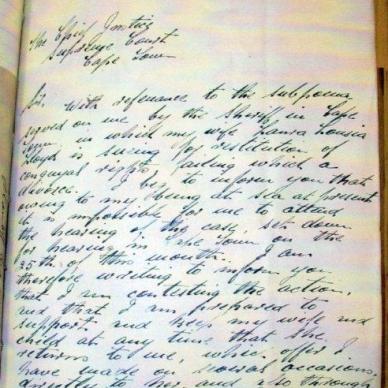 The Chief Justice
Supreme Court
Cape Town
Sir, With reference to the subpoena
served on me by the Sheriff in Cape
Town in which my wife Louisa
Lloyd is sueing for restitution of
conjugal rights, failing which a
divorce. I beg to inform you that
owing to my being at sea at present
it is impossible for me to attend
the hearing of the case, set down
for hearing in Cape Town on the
25th of this month. I am
therefore writing to inform you
that I am contesting the action,
and that I am prepared to
support and keep my wife and
child at any time that she
returns to me, which offer I
have made on several occasions
directly to her and also through